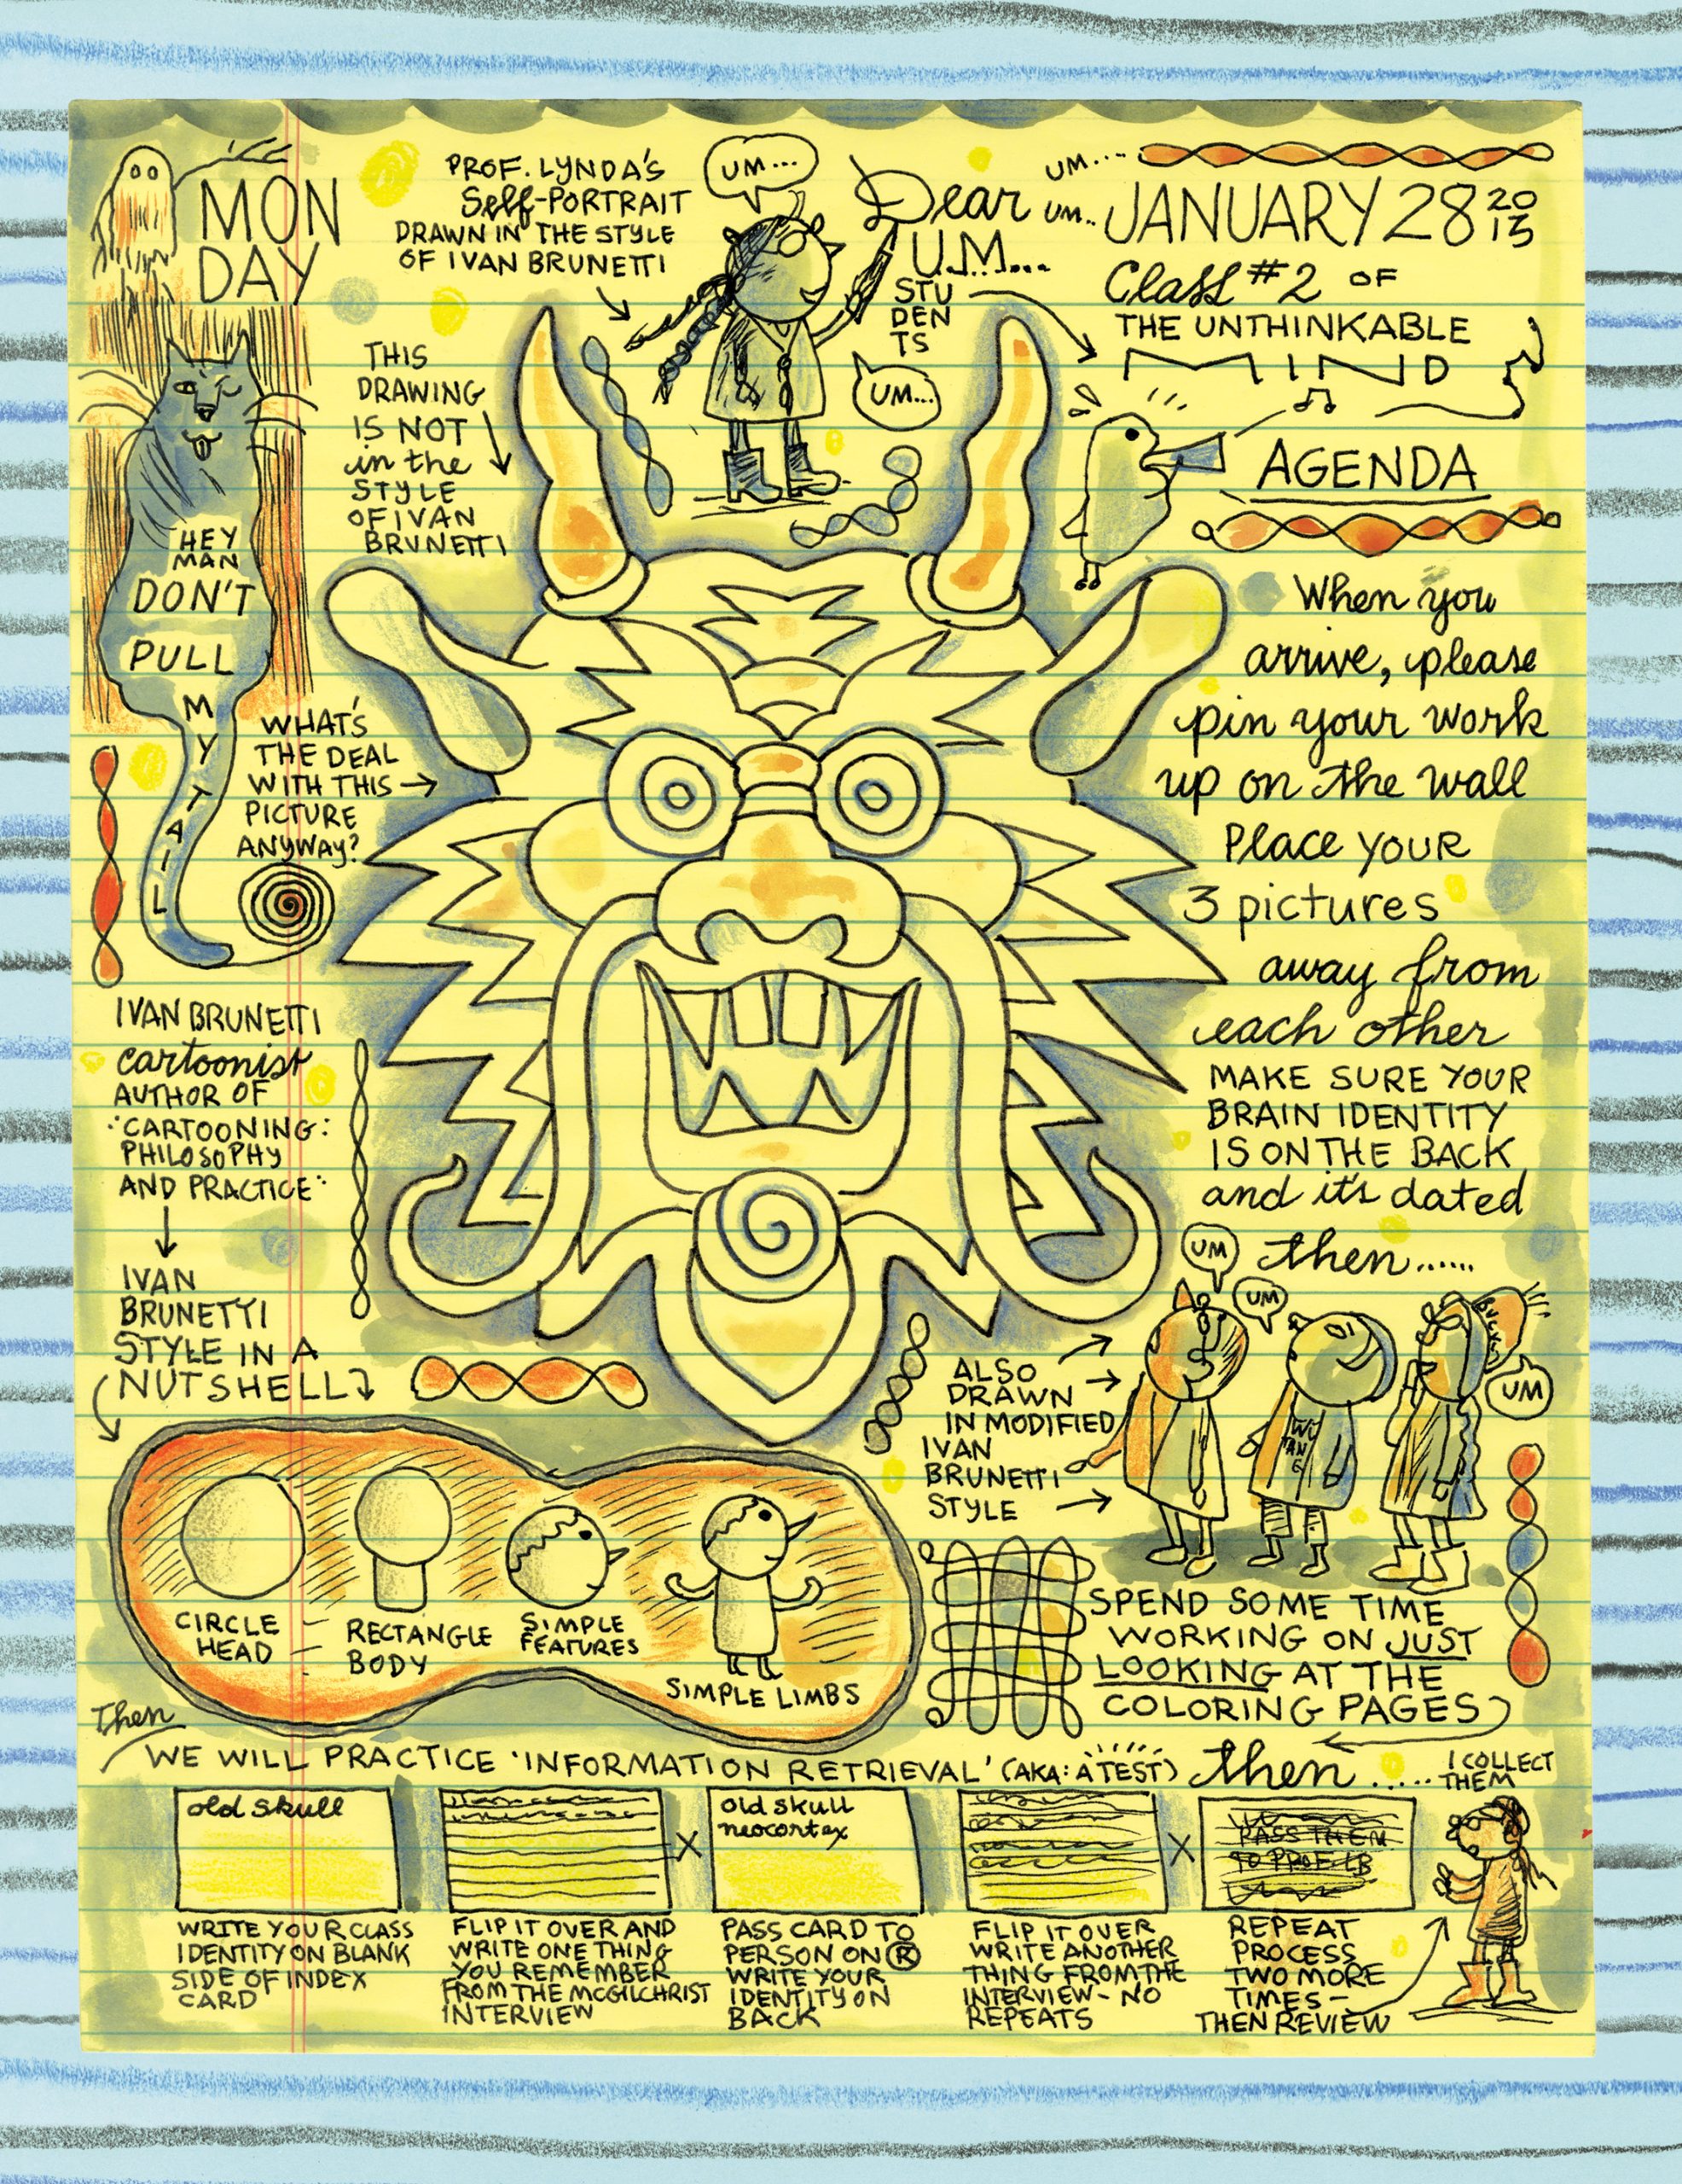 MON
DAY
PROF. LYNDA'S
Self-PORTRAIT
DRAWN IN THE STYLE
OF IVAN BRUNETTI
UM...
Dear
UM....
UM..
U.M....
STU
DEN
TS
UM...
JANUARY 28 20
13
Class #2 OF
THE UNTHINKABLE
MIND
AGENDA
THIS
DRAWING
IS NOT
in the
STYLE
OF IVAN
BRUNETTI
HEY
MAN
DON'T
PULL
MY TAIL
WHAT'S
THE DEAL
WITH THIS
PICTURE
ANYWAY?
When you
arrive, please
pin your work
up on the wall
Place YOUR
3 pictures
away from
each other
MAKE SURE YOUR
BRAIN IDENTITY
IS ON THE BACK
and it's dated
then......
IVAN BRUNETTI
cartoonist
AUTHOR OF
"CARTOONING:
PHILOSOPHY
AND PRACTICE"
IVAN
BRUNETTI
STYLE IN A
NUTSHELL
CIRCLE
HEAD
RECTANGLE
BODY
SIMPLE
FEATURES
SIMPLE LIMBS
UM
UM
UM
WU
TANG
ALSO
DRAWN
IN MODIFIED
IVAN
BRUNETTI
STYLE
SPEND SOME TIME
WORKING ON JUST
LOOKING AT THE
COLORING PAGES
Then
WE WILL PRACTICE 'INFORMATION RETRIEVAL' (AKA: A TEST) then.....
I COLLECT
THEM
old skull
WRITE YOUR CLASS
IDENTITY ON BLANK
SIDE OF INDEX
CARD
FLIP IT OVER AND
WRITE ONE THING
YOU REMEMBER
FROM THE MCGILCHRIST
INTERVIEW
X
old skull
neocortex
PASS CARD TO
PERSON ON R
WRITE YOUR
IDENTITY ON
BACK
FLIP IT OVER
WRITE ANOTHER
THING FROM THE
INTERVIEW - NO
REPEATS
X
PASS THEM
TO PROF. LB
REPEAT
PROCESS
TWO MORE
TIMES -
THEN REVIEW